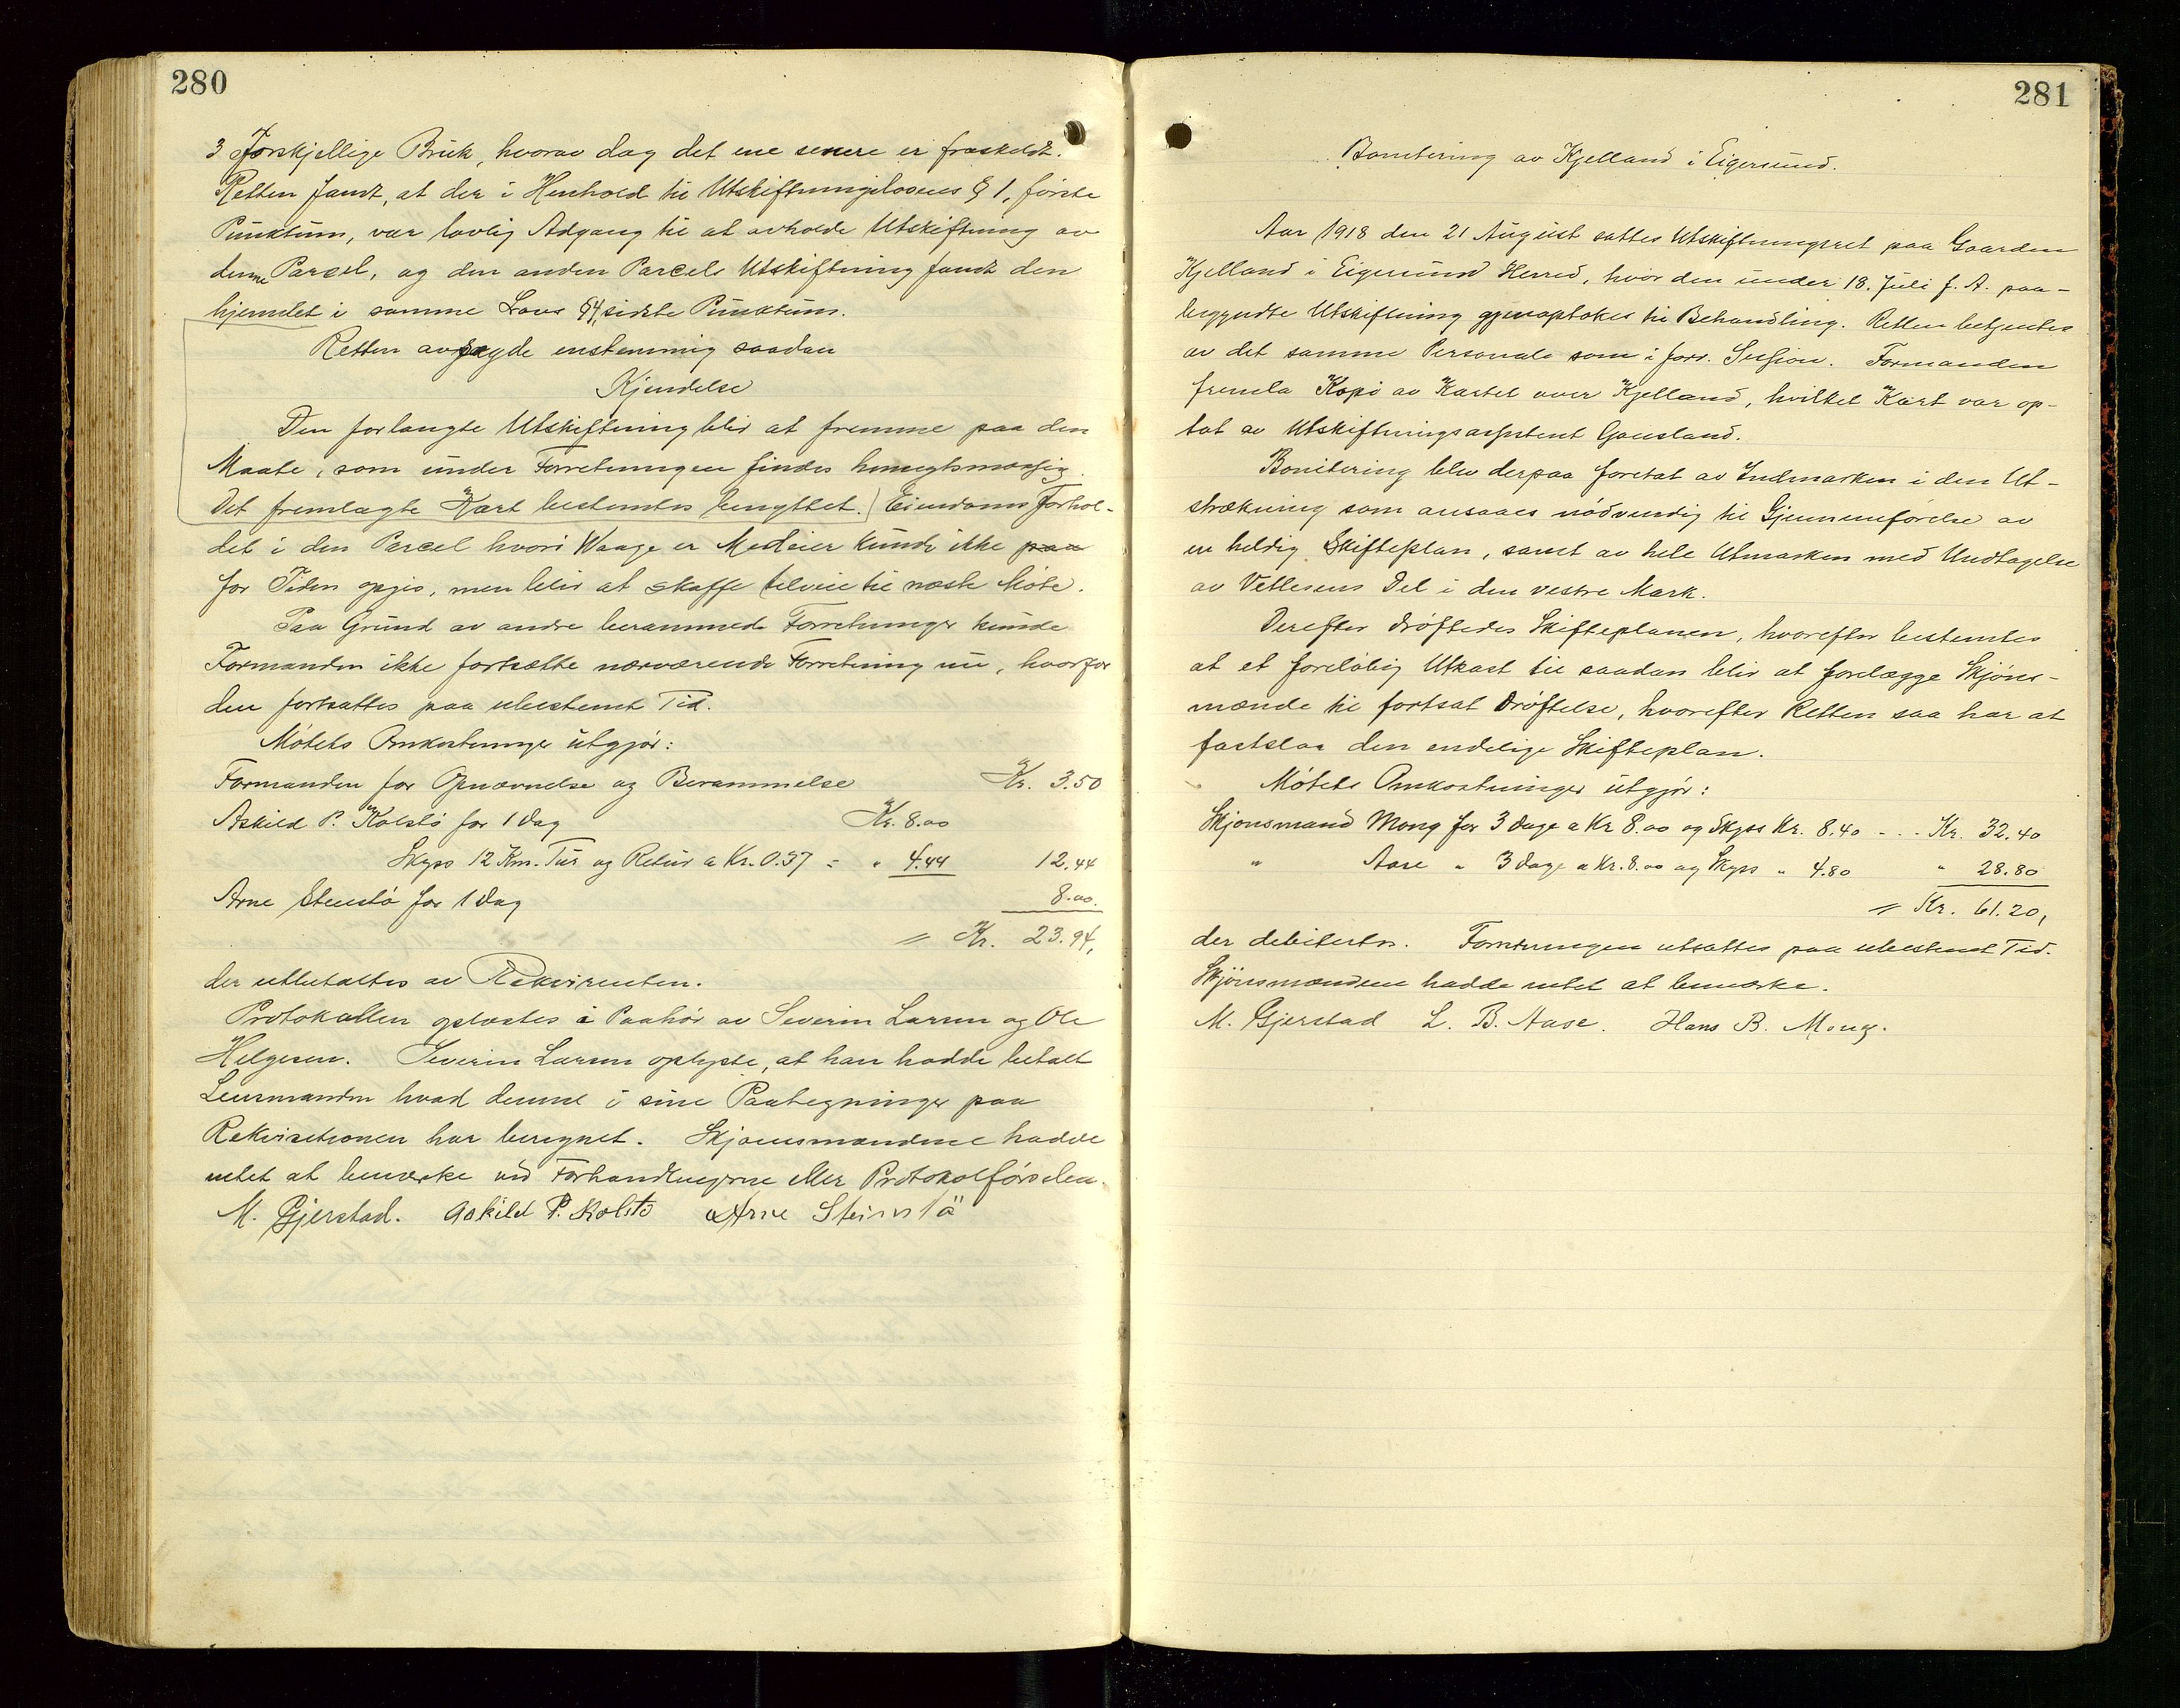 280
3 Forskjellige Bruk, hvorav dog det ene senere er fraskeldt.
Retten fandt, at der i Henhold til Utskiftningslovens § 1, første
Punktum, var lovlig Adgang til at avholde Utskiftning av
denne Parsel, og den anden Parcels Utskiftning fandt den
hjemlet i samme Lovs §4, sidste Punktum.
Retten avsagde enstemmig saadan
Kjendelse
Den forlangte Utskiftning blir at fremme paa den
Maate, som under Forretningen findes hensigtsmæssig.
Det fremlagte Kart bestemtes benyttet. Eiendomsforhol-
det i den Parcel hvori Waage er Medeier kunde ikke paa
for Tiden opgis, men blir at skaffe tilveie til næste Møte.
Paa Grund av andre berammede Forretninger kunde
Formanden ikke fortsætte nærværende Forretning nu, hvorfor
den fortsattes paa ubestemt Tid.
Møtets Omkostninger utgjør:
Formanden for Opnævnelse og Berammelse Kr. 3.50
Askild P. Kolstø for 1 Dag Kr. 8.00
Skyss 12 Km. Tur og Retur a Kr. 0.37 = " 4.44 12.44
Arne Stenstø for 1 Dag 8.00.
= Kr. 23.94,
der utbetaltes av Rekvirenten.
Protokollen oplæstes i Paahør av Severin Larsen og Ole
Helgesen. Severin Larsen oplyste, at han hadde betalt
Lensmanden hvad denne i sine Paategninger paa
Rekvisitionen har beregnet. Skjønsmændene hadde
intet at bemærke ved Forhandlingerne eller Protokolførselen.
M. Gjerstad. Askild P. Kolstø Arne Steinstö
281
Bonitering av Kjelland i Eigersund.
Aar 1918 den 21 August sattes Utskiftningsret paa Gaarden
Kjelland i Eigersund Herred, hvor den under 18. Juli f. A. paa-
begyndte Utskiftning gjenoptokes til Behandling. Retten betjentes
av det samme Personale som i forr. Session. Formanden
fremla Kopi av Kartet over Kjelland, hvilket Kart var op-
tat av Utskiftningsassistent Gausland.
Bonitering blev derpaa foretat av Indmarken i den Ut-
strækning som ansaaes nødvendig til Gjennemførelse av
en heldig Skifteplan, samt av hele Utmarken med Undtagelse
av Vetlesens Del i den vestre Mark.
Derefter drøftedes Skifteplanen, hvorefter bestemtes
at et foreløbig Utkast til saadan blir at forelægge Skjøns-
mænde til fortsat Drøftelse, hvorefter Retten saa har at
fastslaa den endelige Skifteplan.
Møtets Omkostninger utgjør:
Skjønsmand Mong for 3 Dage a Kr 8.00 og Skyss Kr. 8.40 - . . Kr. 32.40
" Aase " 3 Dage a Kr. 8.00 og Skyss " 4.80 " 28.80
= Kr. 61.20,
der debitertes. Forretningen utsattes paa ubestemt Tid.
Skjönsmændene hadde intet at bemærke.
M. Gjerstad L. B. Aase. Hans B. Mong.